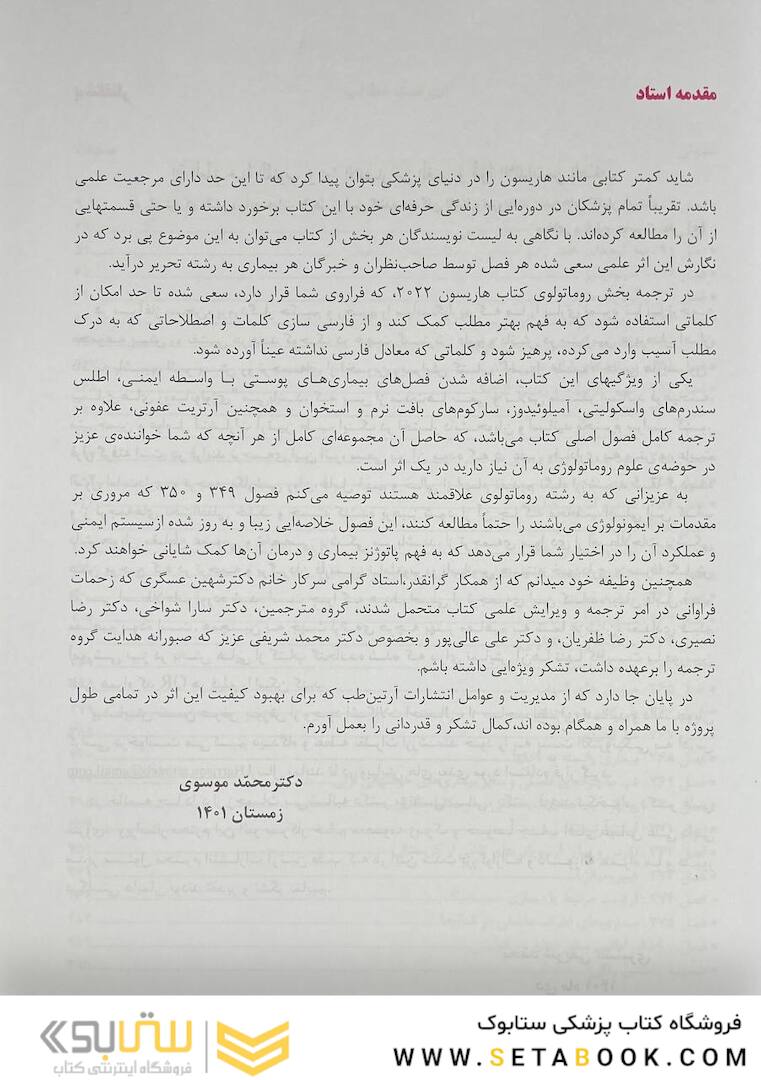 مقدمه استاد
شاید کمتر کتابی مانند هاریسون را در دنیای پزشکی بتوان پیدا کرد که تا این حد دارای مرجعیت علمی
باشد. تقریباً تمام پزشکان در دوره‌ایی از زندگی حرفه‌ای خود با این کتاب برخورد داشته و یا حتی قسمتهایی
از آن را مطالعه کرده‌اند. با نگاهی به لیست نویسندگان هر بخش از کتاب می‌توان به این موضوع پی برد که در
نگارش این اثر علمی سعی شده هر فصل توسط صاحب‌نظران و خبرگان هر بیماری به رشته تحریر درآید.
در ترجمه بخش روماتولوی کتاب هاریسون ۲۰۲۲، که فراروی شما قرار دارد، سعی شده تا حد امکان از
کلماتی استفاده شود که به فهم بهتر مطلب کمک کند و از فارسی سازی کلمات و اصطلاحاتی که به درک
مطلب آسیب وارد می‌کرده، پرهیز شود و کلماتی که معادل فارسی نداشته عیناً آورده شود.
یکی از ویژگیهای این کتاب، اضافه شدن فصل‌های بیماری‌های پوستی با واسطه ایمنی، اطلس
سندرم‌های واسکولیتی، آمیلوئیدوز، سارکوم‌های بافت نرم و استخوان و همچنین آرتریت عفونی، علاوه بر
ترجمه کامل فصول اصلی کتاب می‌باشد، که حاصل آن مجموعه‌ای کامل از هر آنچه که شما خواننده‌ی عزیز
در حوضه‌ی علوم روماتولوژی به آن نیاز دارید در یک اثر است.
به عزیزانی که به رشته روماتولوی علاقمند هستند توصیه می‌کنم فصول ۳۴۹ و ۳۵۰ که مروری بر
مقدمات بر ایمونولوژی می‌باشند را حتماً مطالعه کنند، این فصول خلاصه‌ایی زیبا و به روز شده ازسیستم ایمنی
و عملکرد آن را در اختیار شما قرار می‌دهد که به فهم پاتوژنز بیماری و درمان آن‌ها کمک شایانی خواهند کرد.
همچنین وظیفه خود میدانم که از همکار گرانقدر،استاد گرامی سرکار خانم دکترشهین عسگری که زحمات
فراوانی در امر ترجمه و ویرایش علمی کتاب متحمل شدند، گروه مترجمین، دکتر سارا شواخی، دکتر رضا
نصیری، دکتر رضا ظفریان، و دکتر علی عالی‌پور و بخصوص دکتر محمد شریفی عزیز که صبورانه هدایت گروه
ترجمه را برعهده داشت، تشکر ویژه‌ایی داشته باشم.
در پایان جا دارد که از مدیریت و عوامل انتشارات آرتین‌طب که برای بهبود کیفیت این اثر در تمامی طول
پروژه با ما همراه و همگام بوده اند،کمال تشکر و قدردانی را بعمل آورم.
دکترمحمّد موسوی
زمستان ۱۴۰۱
فروشگاه کتاب پزشکی ستابوک
WWW.SETABOOK.COM
ستابوک
فروشگاه اینترنتی کتاب